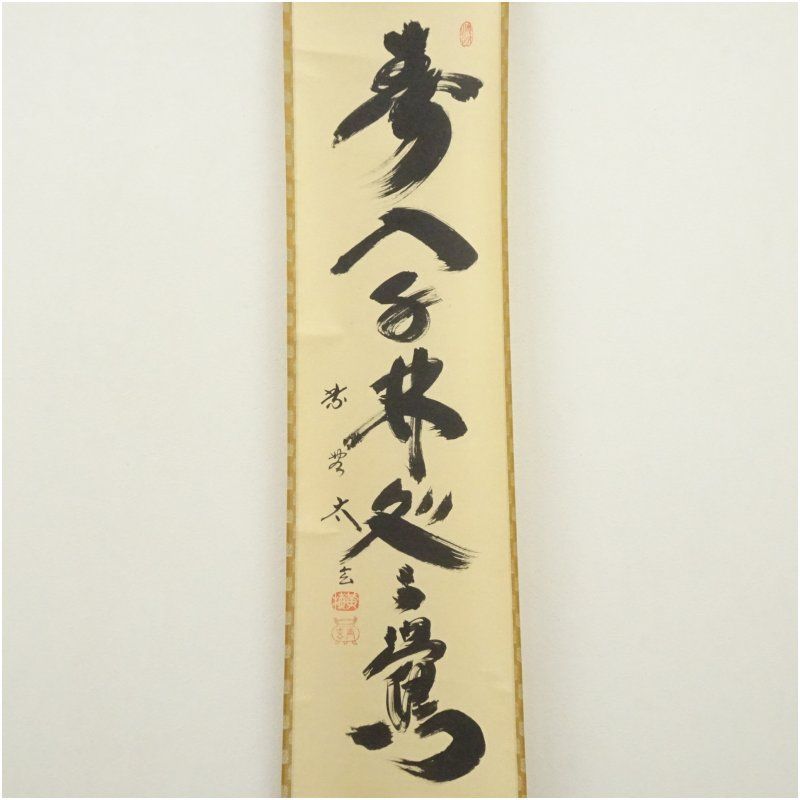 春入千林処々鶯
紫野 太玄